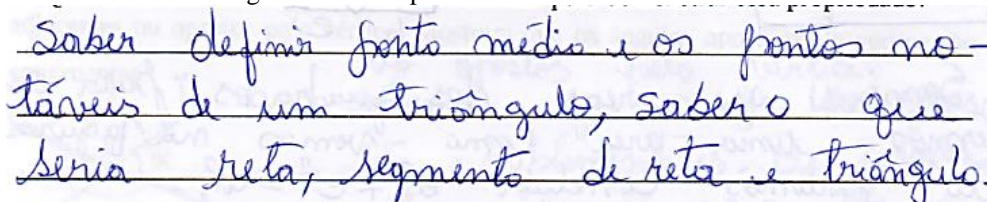 Saber definir ponto médio e os pontos no-
táveis de um triângulo, saber o que
seria reta, segmento de reta e triângulo.